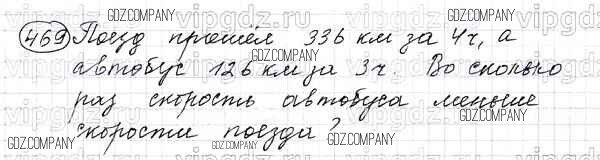 GDZ.COMPANY GDZ.COMPANY GDZ.COMPANY
469 Поезд прошёл 336 км за 4ч, а
автобус 126 км за 3ч. Во сколько
GDZ.COMPANY GDZ.COMPANY GDZ.COMPANY
раз скорость автобуса меньше
скорости поезда?
GDZ.COMPANY GDZ.COMPANY GDZ.COMPANY
vipgdz.ru vipgdz.ru vipgdz.ru